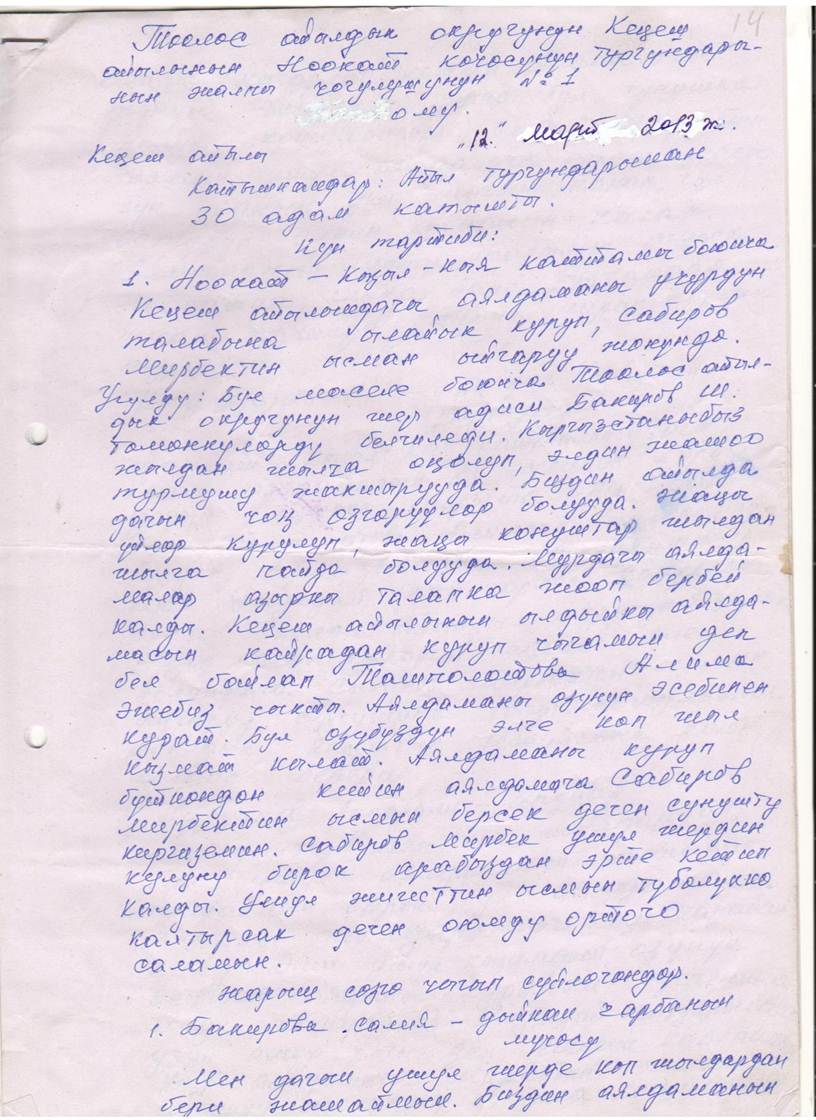 14
Тоолос айылдык округунун Кеңеш
айылынын Ноокат көчөсүнүн тургундары-
нын жалпы чогулушунун №1
ому.
"12." март 2013 ж.
Кеңеш айылы
Катышкандар: Айыл тургундарынан
30 адам катышты.
Күн тартиби:
1. Ноокат – Кызыл-Кыя каттамы боюнча
Кеңеш айылындагы аялдаманы учурдун
талабына ылайык куруп, Сабиров
Мирбектин ысмын ыйгаруу жөнүндө.
Угулду: Бул маселе боюнча Тоолос айыл-
дык округунун жер адиси Бакиров Ш.
төмөнкүлөрдү белгиледи. Кыргызстаныбыз
жылдан жылга оңолуп, элдин жашоо
турмушу жакшырууда. Биздин айылда
дагын чоң өзгөрүүлөр болууда. Жаңы
үйлөр курулуп, жаңы конуштар жылдан
жылга пайда болууда. Мурдагы аялда-
малар азыркы талапка жооп бербей
калды. Кеңеш айылынын ылдыйкы аялда-
масын кайрадан куруп чыгамын деп
бел байлап Ташполотова Алима
эжебиз чыкты. Аялдаманы өзүнүн эсебинен
курат. Бул өзүбүздүн элге көп жыл
кызмат кылат. Аялдаманы куруп
бүткөндөн кийин аялдамага Сабиров
Мирбектин ысмын берсек деген сунушту
киргиземин. Сабиров Мирбек ушул жердин
кулуну бирок арабыздан эрте кетип
калды. Ушул жигиттин ысмын түбөлүккө
калтырсак деген оюмду ортого
саламын.
Жарыш сөзгө чыгып сүйлөгөндөр.
1. Бакирова Салия – дыйкан чарбанын
мүчөсү
Мен дагын ушул жерде көп жылдардан
бери жашаймын. Биздин аялдаманын